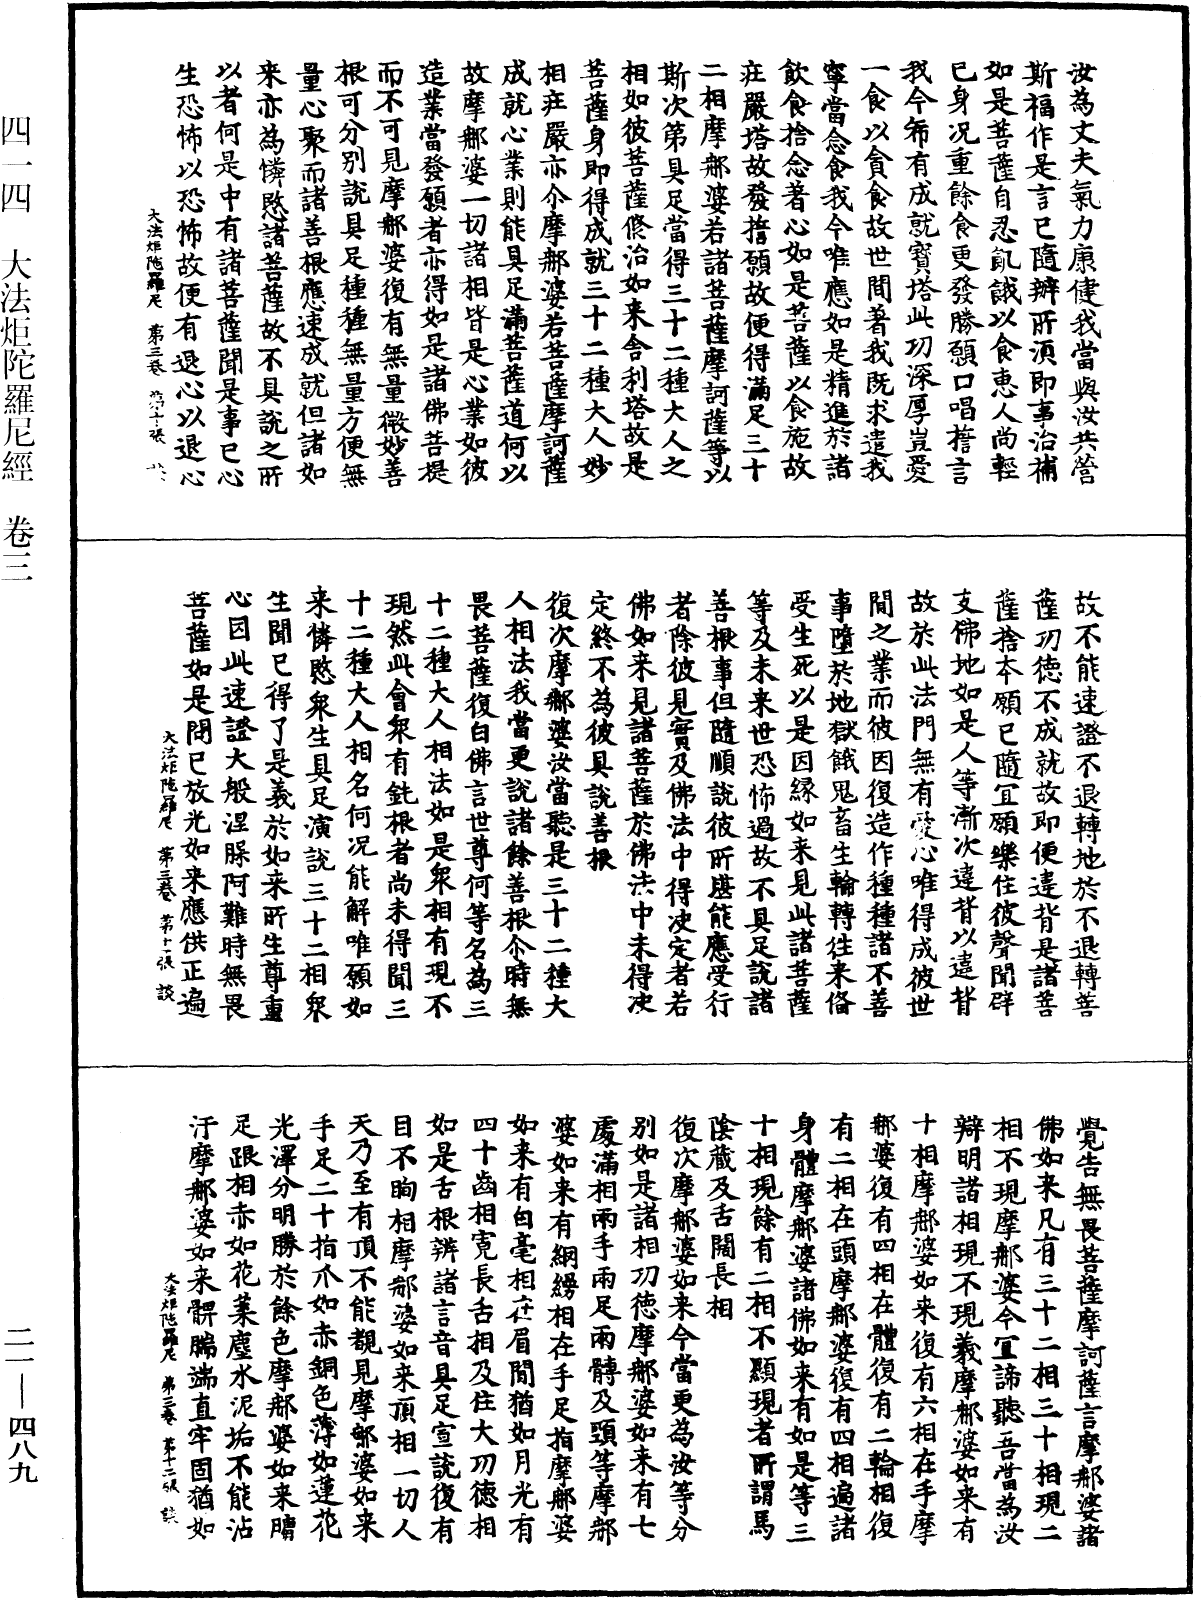 四一四　大法炬陀羅尼經　卷三
二一—四八九
汝為丈夫氣力康健我當與汝共營
斯福作是言已隨辦所須即事治補
如是菩薩自忍飢餓以食惠人尚輕
已身況重餘食更發勝願口唱誓言
我今希有成就寶塔此功深厚豈愛
一食以貪食故世間著我既求遠我
寧當念食我今唯應如是精進於諸
飲食捨念著心如是菩薩以食施故
莊嚴塔故發誓願故便得滿足三十
二相摩那婆若諸菩薩摩訶薩等以
斯次第具足當得三十二種大人之
相如彼菩薩修治如来舍利塔故是
菩薩身即得成就三十二種大人妙
相莊嚴亦尒摩那婆若菩薩摩訶薩
成就心業則能具足滿菩薩道何以
故摩那婆一切諸相皆是心業如彼
造業當發願者亦得如是諸佛菩提
而不可見摩那婆復有無量微妙善
根可分別說具足種種無量方便無
量心聚而諸善根應速成就但諸如
来亦為憐愍諸菩薩故不具說之所
以者何是中有諸菩薩聞是事已心
生恐怖以恐怖故便有退心以退心
大法炬陀羅尼　第三卷　第十張
故不能速證不退轉地於不退轉菩
薩功德不成就故即便違背是諸菩
薩捨本願已隨冝願樂住彼聲聞辟
支佛地如是人等漸次違背以違背
故於此法門無有愛心唯得成彼世
間之業而彼因復造作種種諸不善
事墮於地獄餓鬼畜生輪轉往来俻
受生死以是因緣如来見此諸菩薩
等及未来世恐怖過故不具足說諸
善根事但隨順說彼所堪能應受行
者除彼見實及佛法中得决定者若
佛如来見諸菩薩於佛法中未得决
定終不為彼具說善根
復次摩那婆汝當聽是三十二種大
人相法我當更說諸餘善根尒時無
畏菩薩復白佛言世尊何等名為三
十二種大人相法如是眾相有現不
現然此會眾有鈍根者尚未得聞三
十二種大人相名何況能解唯願如
来憐愍眾生具足演說三十二相眾
生聞已得了是義於如来所生尊重
心因此速證大般涅槃阿難時無畏
菩薩如是問已放光如来應供正遍
大法炬陀羅尼　第三卷　第十一張　談
覺告無畏菩薩摩訶薩言摩那婆諸
佛如来凡有三十二相三十相現二
相不現摩那婆今冝諦聽吾當為汝
辯明諸相現不現義摩那婆如来有
十相摩那婆如来復有六相在手摩
那婆復有四相在體復有二輪相復
有二相在頭摩那婆復有四相遍諸
身體摩那婆諸佛如来有如是等三
十相現餘有二相不顯現者所謂馬
陰藏及舌闊長相
復次摩那婆如来今當更為汝等分
別如是諸相功德摩那婆如来有七
處滿相兩手兩足兩髆及頸等摩那
婆如来有網縵相在手足指摩那婆
如来有白毫相在眉間猶如月光有
四十齒相寬長舌相及住大功德相
如是舌根辨諸言音具足宣說復有
目不眴相摩那婆如来頂相一切人
天乃至有頂不能覩見摩那婆如来
手足二十指爪如赤銅色薄如蓮花
光澤分明勝於餘色摩那婆如来䏶
足跟相赤如花葉塵水泥垢不能沾
汙摩那婆如来髀𨄔端直牢固猶如
大法炬陀羅尼　第三卷　第十二張　談